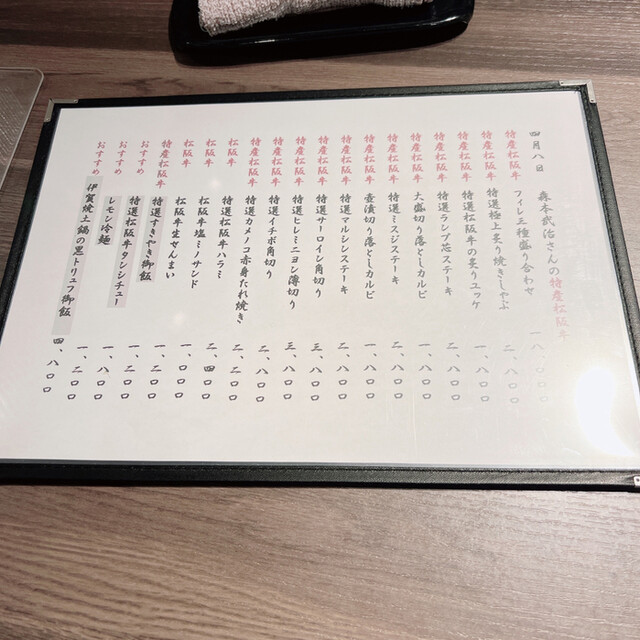 四月八日　森本武治さんの特産松阪牛
特産松阪牛　フィレ五種盛り合わせ　一八、〇〇〇
特産松阪牛　特選極上炙り焼きしゃぶ　二、八〇〇
特産松阪牛　特選松阪牛の炙りユッケ　一、八〇〇
特産松阪牛　特選ランプ芯ステーキ　二、八〇〇
特産松阪牛　大盛切り落としカルビ　一、八〇〇
特産松阪牛　特選ミスジステーキ　二、八〇〇
特産松阪牛　壺漬切り落としカルビ　一、八〇〇
特産松阪牛　特選マルシンステーキ　二、八〇〇
特産松阪牛　特選サーロイン角切り　三、八〇〇
特産松阪牛　特選ヒレミニヨン薄切り　三、八〇〇
特産松阪牛　特選イチボ角切り　二、八〇〇
特産松阪牛　特選カメノコ赤身たれ焼き　二、八〇〇
松阪牛　特選松阪牛ハラミ　二、二〇〇
松阪牛　松阪牛塩ミノサンド　二、四〇〇
松阪牛　松阪牛生ぜんまい　一、〇〇〇
特産松阪牛　特選すきやき御飯　一、二〇〇
おすすめ　特選松阪牛タンシチュー　一、二〇〇
おすすめ　レモン冷麺　一、二〇〇
おすすめ　伊賀焼土鍋の黒トリュフ御飯　四、八〇〇